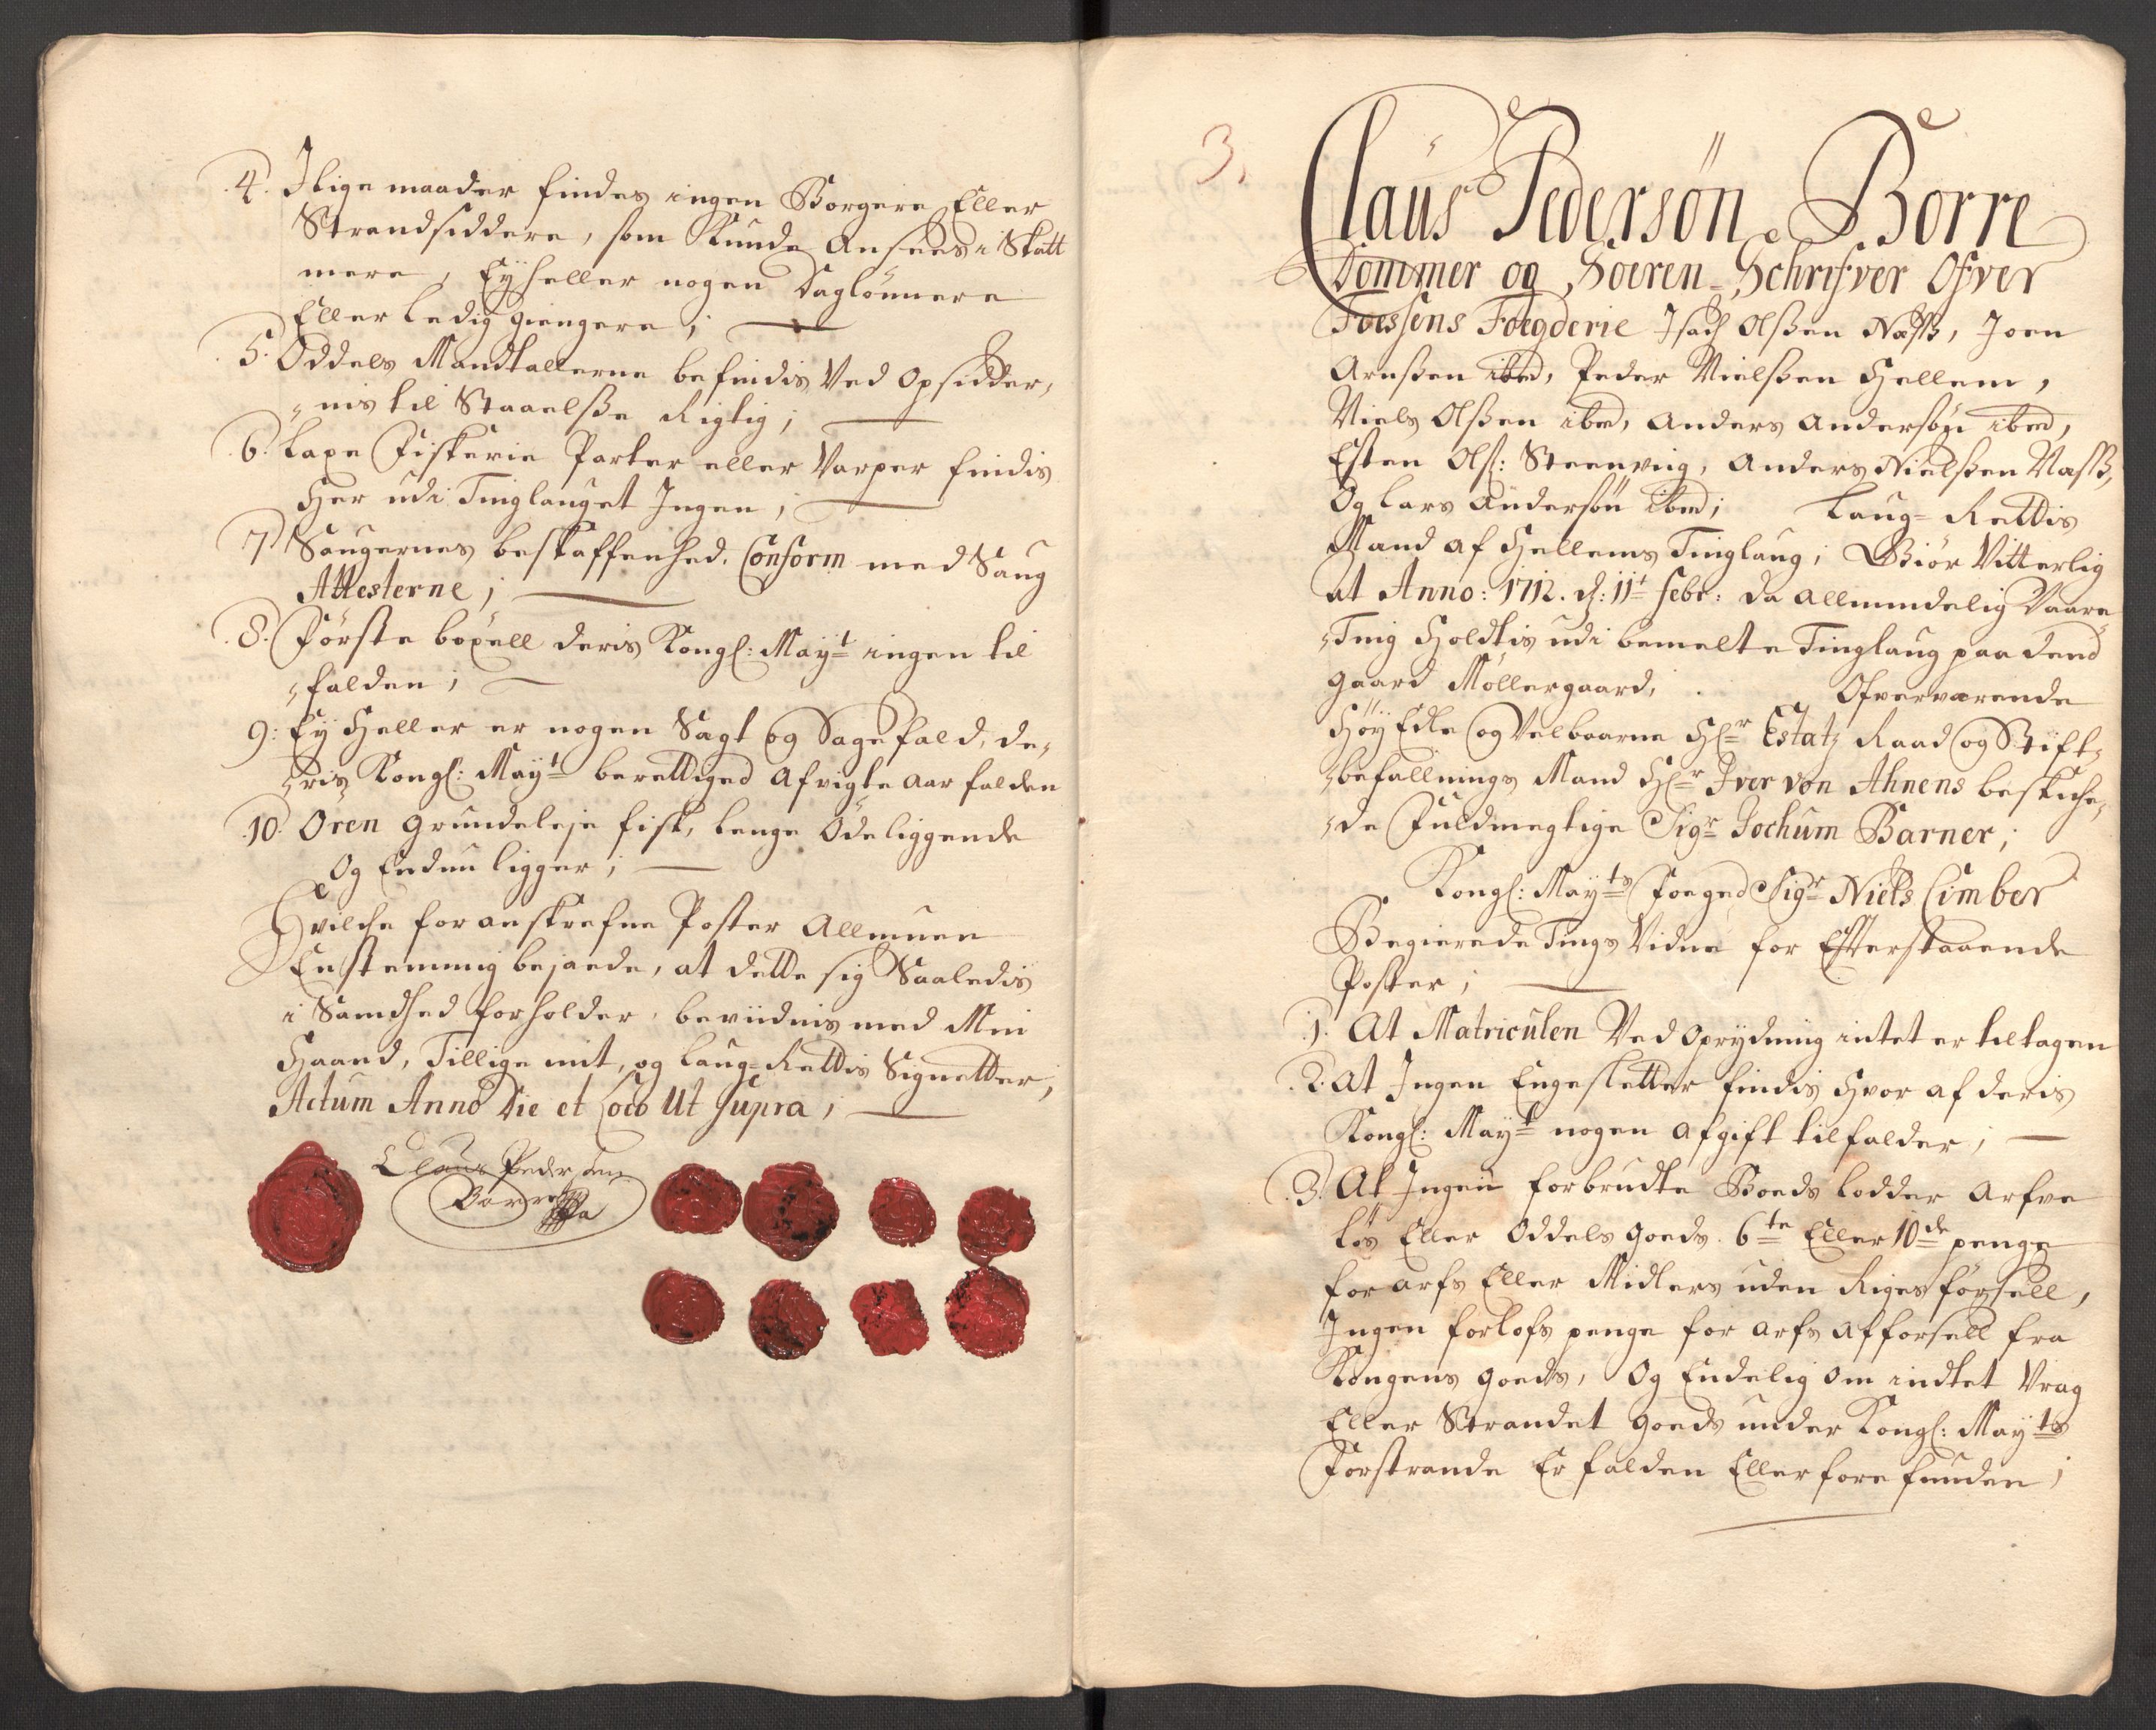 4. Jlige maader findes ingen Borgere Eller
Strandsiddere, som Kunde Ansees i Skatt
mere, Eyheller nogen Daglönnere
Eller Ledig giengere;
5. Oddels Mandtallerne befindis Ved Opsidder,
"nis til Staaelsse Rigtig;
6. Laxe Fiskerie Parter eller Varper findis
Her udi Tinglauget Jngen;
7 Saugernes beskaffenhed. Conform med Saug
Attesterne;
8. Förste böxell deris Kongl: Mayt ingen til
"falden;
9: Ey Heller er nogen Sagt og Sagefald, de,
"ris Kongl: Mayt berettiged Afvigte Aar falden
10. Ören Grundeleje fisk, lenge Ödeliggende
Og Endnu ligger;
Hvilche foranskrefne Poster Allmuen
Enstemmig bejaede, at dette sig Saaledis
i Sandhed forholder, bevidnis med Min
Haand, Tillige mit, og Laug-Rettis Signetter;
Actum Anno Die et Loco Ut Supra;
Claus Pedersen
Borre
3.
Claus Pedersön Borre
Dommer og Soeren-Schrifver Ofver
Foessens Foegderie Jsach Olssen Næss, Joen
Arnssen ibm, Peder Nielssen Hellem,
Niels Olssen ibm, Anders Andersön ibm,
Esten Ols: Steenvig, Anders Nielssen Næss,
Og Lars Andersön ibm; Laug-Rettis
Mænd af Hellems Tinglaug; Giör Vitterlig
at Anno: 1712. d: 11t febr: da allmindelig Vaare
"Ting Holdtis udi bemelte Tinglaug paa dend
gaard Möllergaard, Ofverværende
Höy Edle og Velbaarne Hr Estatz Raad og Stift,
"befallnings Mand Hr Iver von Ahnens beskiche,
"de Fuldmegtige Sigr Jochum Barner;
Kongl: Mayts Foeged Sigr Niels Cimber
Begierede Tings Vidne for Efterstaaende
Poster;
1. At Matriculen Ved Oprydning intet er tiltagen
2. At Jngen Engesletter findis Hvor af deris
Kongl: Mayt nogen Afgift tilfalder;
3. At Jngen forbrudte Boeds lodder Arfve
lös Eller Oddels Goeds. 6te Eller 10de penge
for Arfs Eller Midlers uden Riges försell,
Jngen forlofs penge for Arfs Afforsell fra
Kongens Goeds, Og Endelig Om indtet Vrag
Eller Strandet Goeds under Kongl: Mayts
Forstrande Er falden Eller forefunden;